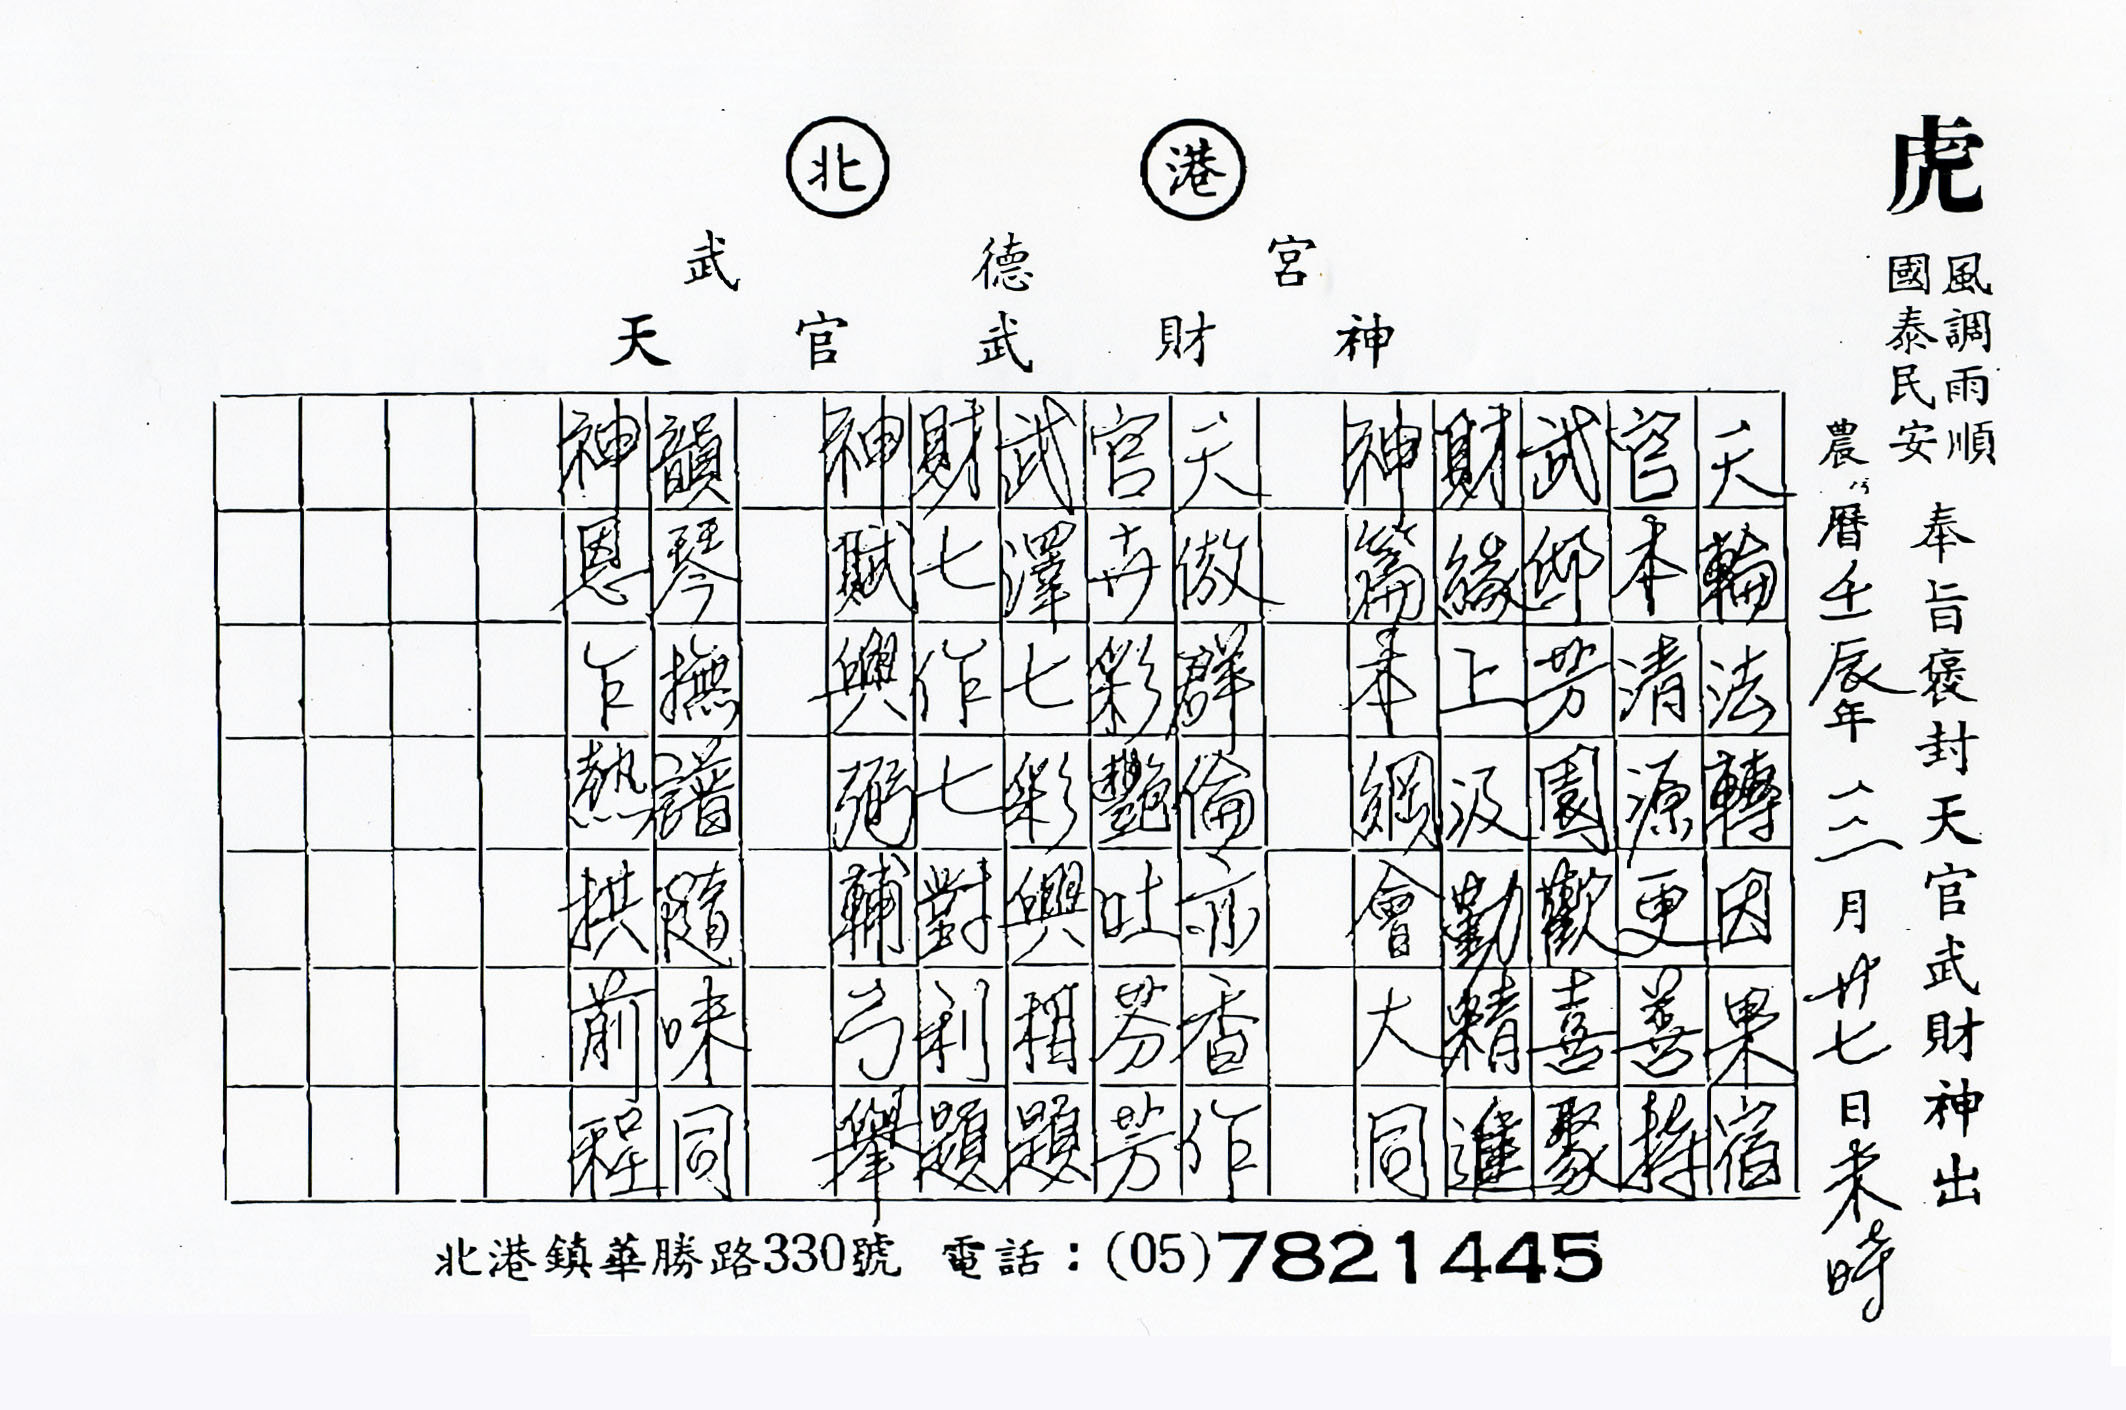 虎
風調雨順
國泰民安
奉旨褒封天官武財神出
農曆壬辰年十二月廿七日未時
北港
武德宮
天官武財神
天輪法轉因果宿
官本清源更善持
武邸芳園歡喜聚
財緣上汲勤精進
神篇本綱會大同
天傲群倫亦香作
官卉彩艷吐芬芳
武澤七彩興相題
財七作七對利題
神賦興弼輔弓舉
韻琴撫譜隨味同
神恩乍熱拱前程
北港鎮華勝路330號 電話：(05)7821445